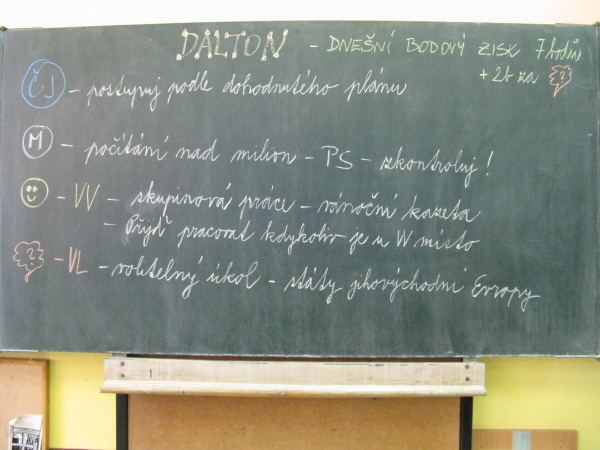 DALTON - DNEŠNÍ BODOVÝ ZISK 7 bodů
+ 2b za ?
ČJ - postupuj podle dohodnutého plánu
M - počítání nad milion - PS - zkontroluj!
- VV - skupinová práce - vánoční kazeta
- Přijď pracovat kdykoliv je u VV místo
? - VL - volitelný úkol - státy jihovýchodní Evropy